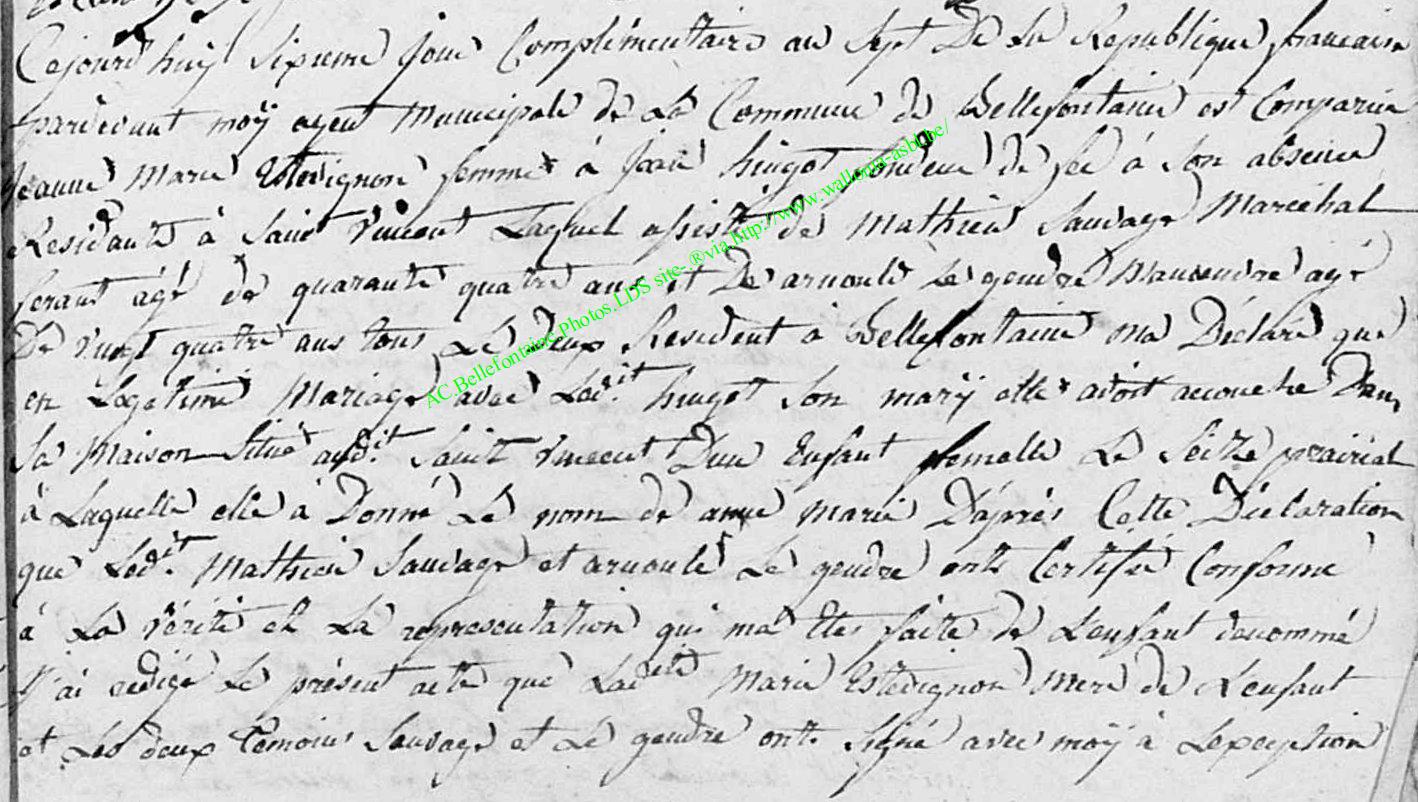 Cejourd'huÿ sixieme jour Complémentaire an Sept De La République francaise
pardevant moÿ agent Municipale de La Commune de Bellefontaine est Comparue
Jeanne Marie Estevignon femme à Jean hugot fondeur de fer à Son absence
Residante à Saint Vincent Laquel assisté de Mathieu Sauvage Marechal
ferant agé de quarante quatre ans et De arnould Le gendre Manoeuvre agé
De vingt quatre ans tous Le deux Resident a Bellefontaine ma Déclaré que
en Legetime Mariage avec Ledit. hugot Son marÿ elle avoit accouché Dans
Sa Maison Situé audit. Saint Vincent D'un Enfant femelle Le Seize prairial
à Laquelle elle à Donné Le nom de anne Marie D'aprés Cette Déclaration
que Ledit. Mathieu Sauvage et arnould Le gendre onts Certifié Conforme
à La vérité et La representation qui ma Etes faite de L'enfant denommé
J'ai redigé Le présent acte que Ladite Marie Estevignon Mere de L'enfant
et Les deux Temoins Sauvage et Le gendre onts Signé avec moÿ à L'exception
AC.Bellefontaine.Photos.LDS site-®via.http://www.wallonia-asbl.be/